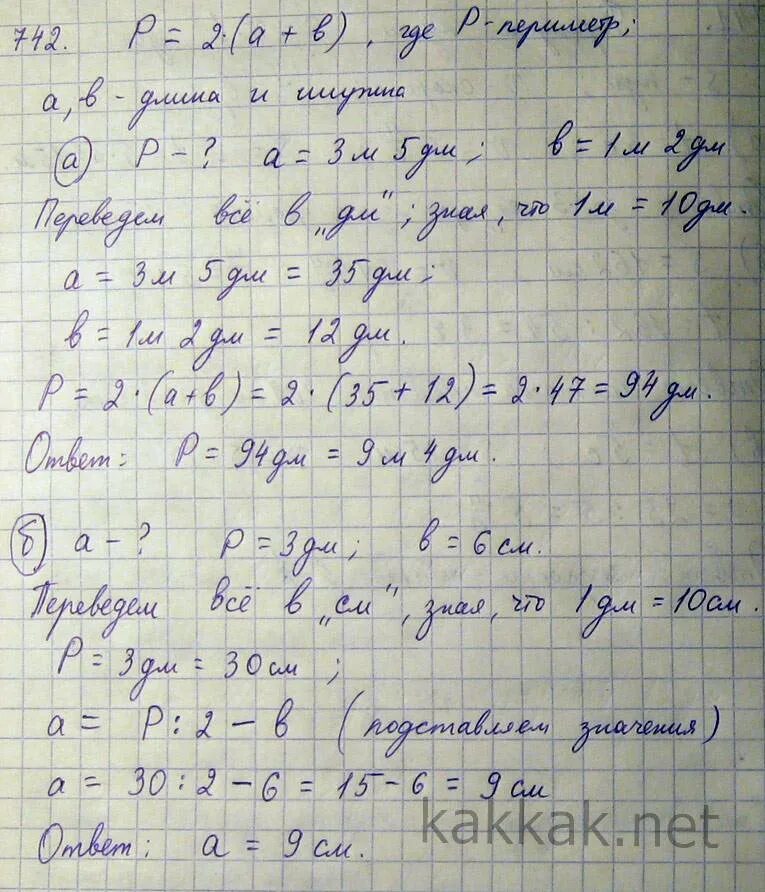 742. P = 2·(a + b), где P - периметр;
a, b - длина и ширина
а) P - ? a = 3 м 5 дм; b = 1 м 2 дм
Переведем всё в „дм"; зная, что 1 м = 10 дм.
a = 3 м 5 дм = 35 дм;
b = 1 м 2 дм = 12 дм.
P = 2·(a+b) = 2·(35+12) = 2·47 = 94 дм.
Ответ: P = 94 дм = 9 м 4 дм.
б) a - ? P = 3 дм; b = 6 см.
Переведем всё в „см", зная, что 1 дм = 10 см.
P = 3 дм = 30 см;
a = P : 2 - b (подставляем значения)
a = 30 : 2 - 6 = 15 - 6 = 9 см
kakkak.net
Ответ: a = 9 см.